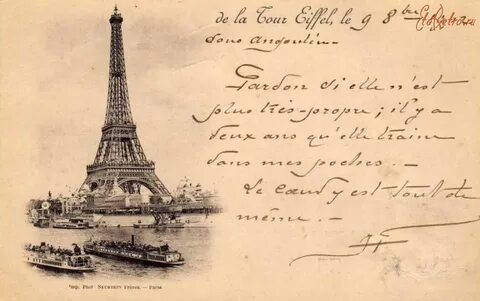 de la Tour Eiffel, le 9 8bre
Sous
Pardon si elle n'est
plus très-propre; il y a
deux ans qu'elle traine
dans mes poches.-
Le cœur y est tout de
même.-
Imp. Phot. NEURDEIN Frères. - PARIS